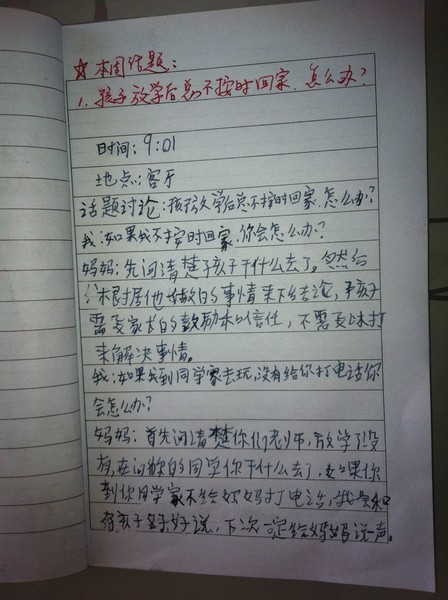 ☆本周话题：
1.孩子放学后总不按时回家.怎么办？
时间：9:01
地点：客厅
话题讨论：孩子放学后总不按时回家.怎么办？
我：如果我不按时回家.你会怎么办？
妈妈：先问清楚孩子干什么去了。然后
根据他做的事情来下结论，孩子
需要家长的鼓励和信任，不需要打
来解决事情。
我：如果我到同学家去玩，没有给你打电话你
会怎么办？
妈妈：首先问清楚你们老师，放学了没
有，在问你的同学你干什么去了，如果你
到你同学家不给妈妈打电话，我会和
孩子好好说，下次一定给妈妈说一声。